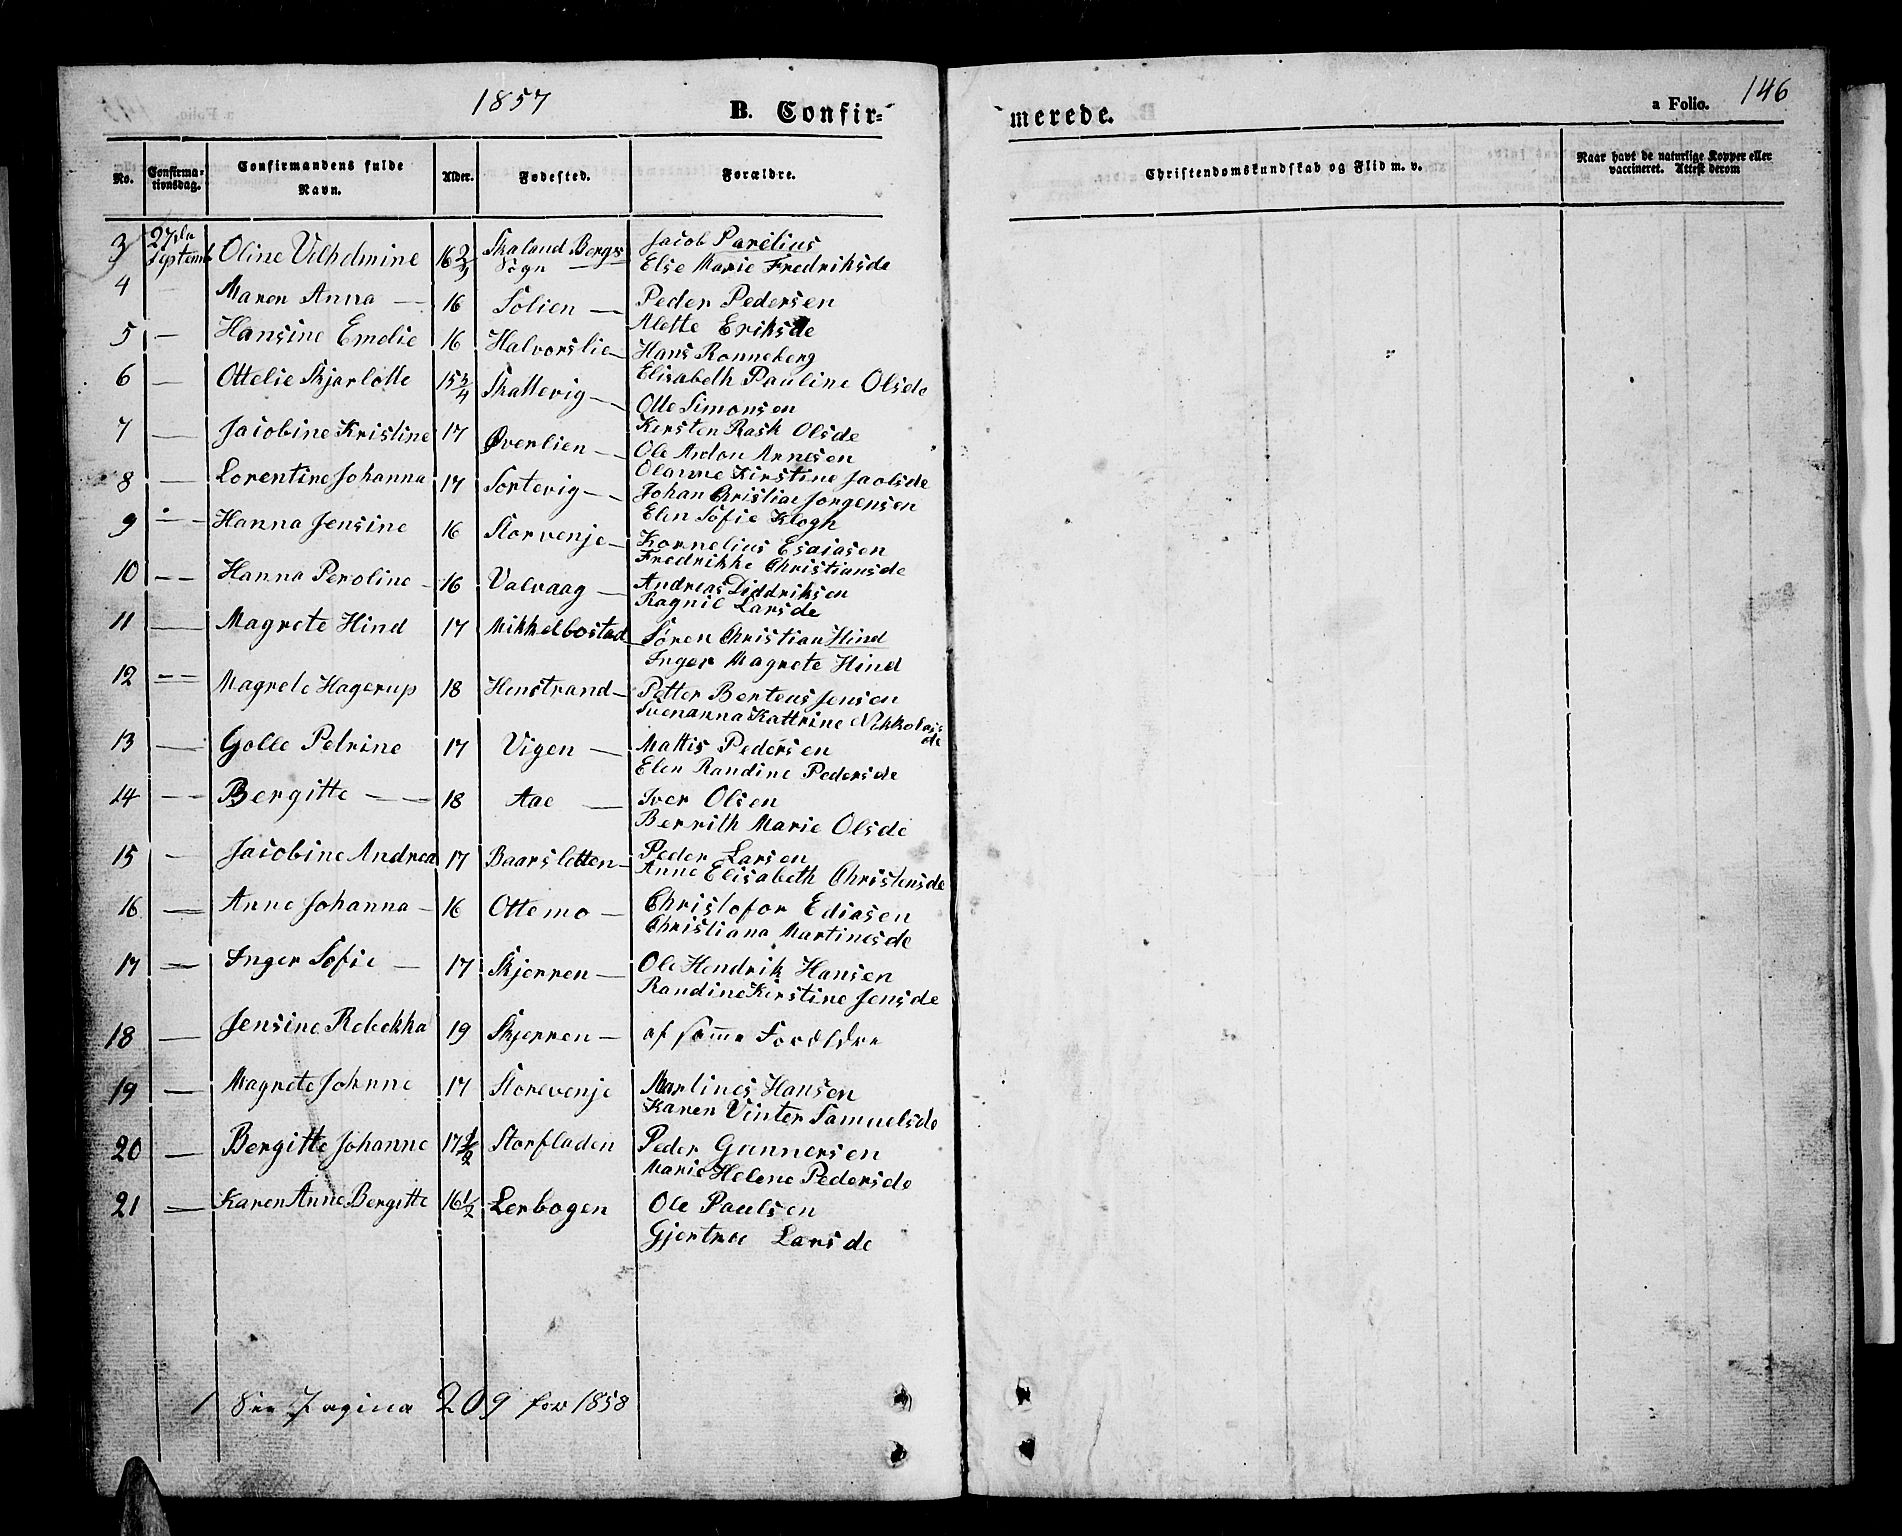 1857
B. Confir-
merede.
a Folio. 146
No. Confirma-tionsdag. Confirmandens fulde Navn. Alder. Fødested. Forældre.
Christendomskundskab og Flid m. v. Naar havt de naturlige Kopper eller vaccineret. Attest derom
3 27de Septemb Oline Vilhelmine 16 2/3 Skaland Bergs Sogn Jacob Parelius
Else Marie Fredriksde
4 Maren Anna — 16 Solien — Peder Pedersen
Alette Eriksde
5 — Hansine Emelie 16 Halvorslie — Hans Ronneberg
Elisabeth Pauline Olsde
6 — Ottelie Skjarlotte 15 3/4 Skattevig — Olle Simonsen
Kersten Rask Olsde
7 — Jacobine Kristine 17 Øverlien — Ole Anton Arnesen
Olanne Kirstine Jaolsde
8 — Lorentine Johanna 17 Sortevig — Johan Christian Jorgensen
Elen Sofie Klogh
9 — Hanna Jensine 16 Storvenje — Kornelius Esaiasen
Fredrikke Christiansde
10 — Hanna Peroline — 16 Valvaag — Andreas Diddriksen
Ragnil Larsde
11 — Magrete Hind 17 Mikkelbostad Søren Christian Hind
Inger Magrete Hind
12 — Magrete Hagerup 18 Henstrand — Petter Berteus Jensen
Svenanna Kattrine Nikkolais
de
13 — Golle Petrine 17 Vigen — Mattis Pedersen
Elen Randine Pedersde
14 — Bergitte — 18 Aae — Iver Olsen
Berrith Marie Olsde
15 — Jacobine Andrea 17 Baarsletten — Peder Larsen
Anne Elisabeth Christensde
16 — Anne Johanna — 16 Ottemo — Christofor Ediasen
Christiana Martinesde
17 — Inger Sofie — 17 Skjerren — Ole Hendrik Hansen
Randine Kirstine Jensde
18 — Jensine Rebekka 19 Skjerren — af samme Forældre
19 — Magrete Johnne 17 Storevenje Martines Hansen
Karen Vinter Samuelsde
20 — Bergitte Johanne 17 1/2 Storfladen Peder Gunnersen
Marie Helene Pedersde
21 — Karen Anne Bergitte 16 1/2 Lerbogen Ole Paulsen
Gjertrue Larsde
See Pagina 209 for 1858